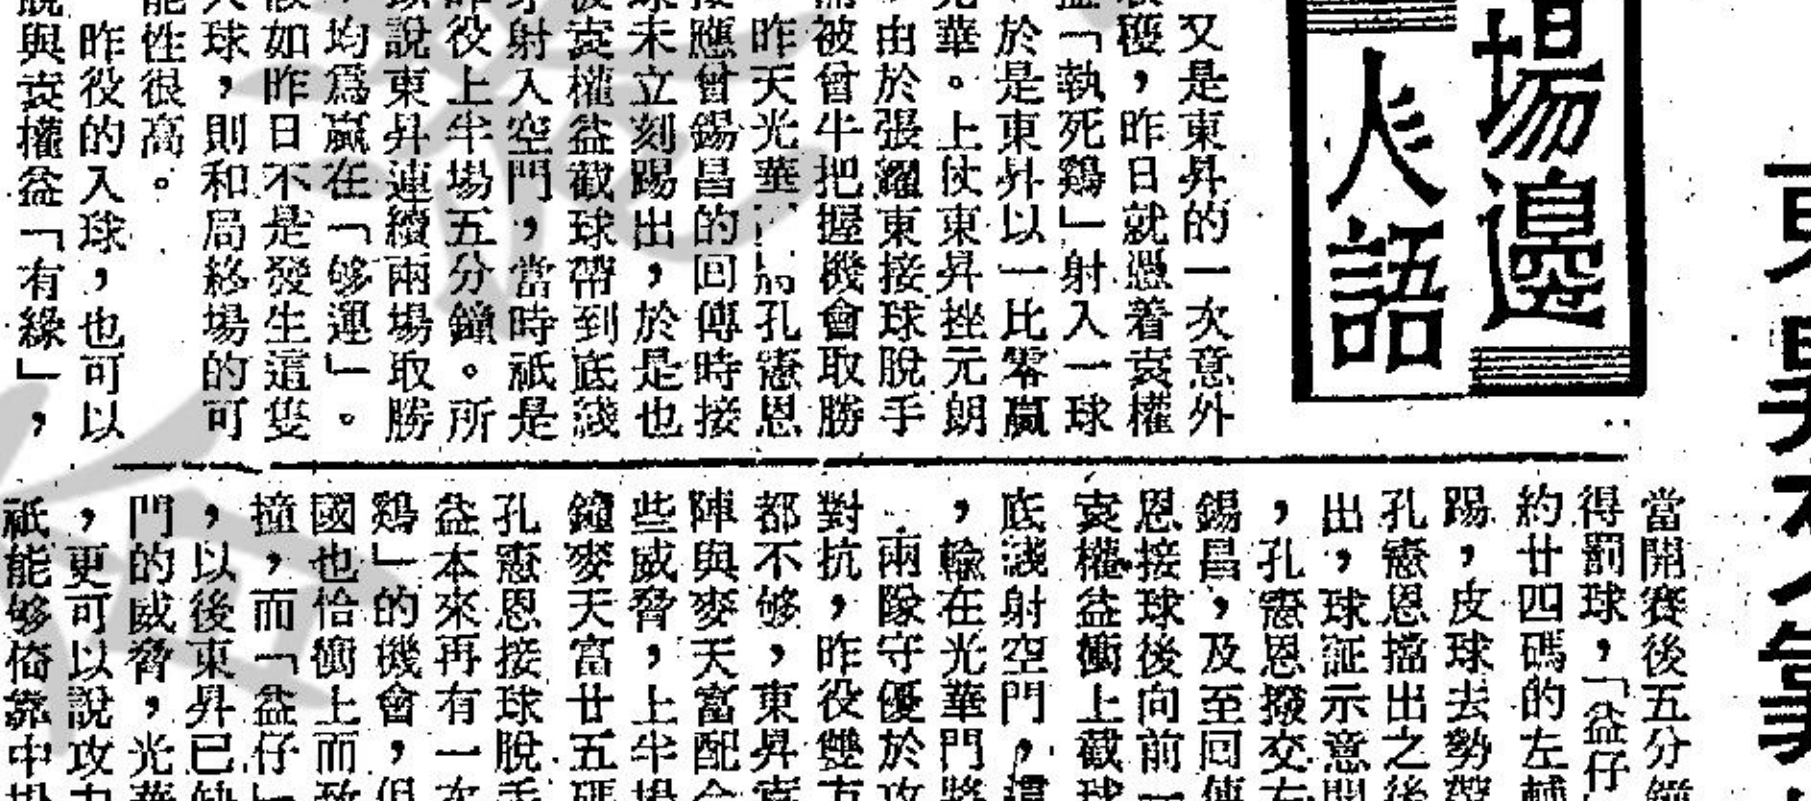 場邊
人語
又是東昇的一次意外
穫，昨日就憑着袁權
益「執死鷄」射入一球
於是東昇以一比零贏
光華。上仗東昇挫元朗
由於張耀東接球脫手
被曾牛把握機會取勝
昨天光華 孔憲恩
接應曾錫昌的回傳時接
球未立刻踢出，於是也
被袁權益截球帶到底綫
才射入空門，當時祇是
昨役上半場五分鐘。所
以說東昇連續兩場取勝
，均為贏在「够運」。
假如昨日不是發生這隻
入球，則和局終場的可
能性很高。
昨役的入球，也可以
說與袁權益「有緣」，
當開賽後五分鐘
得罰球，「益仔
約廿四碼的左輔
踢，皮球去勢
孔憲恩擋出之後
出，球証示意開
，孔憲恩撥交左
錫昌，及至回傳
恩接球後向前一
袁權益衝上截球
底綫射空門，還
，輸在光華門將
兩隊守優於攻
對抗，昨役雙方
都不够，東昇
陣與麥天富配合
些威脅，上半場
鐘麥天富廿五碼
孔憲恩接球脫手
益本來再有一次
鷄」的機會，但
國也恰衝上而致
撞，而「益仔」
，以後東昇已缺
門的威脅，光華
，更可以說攻力
祇能够倚靠中